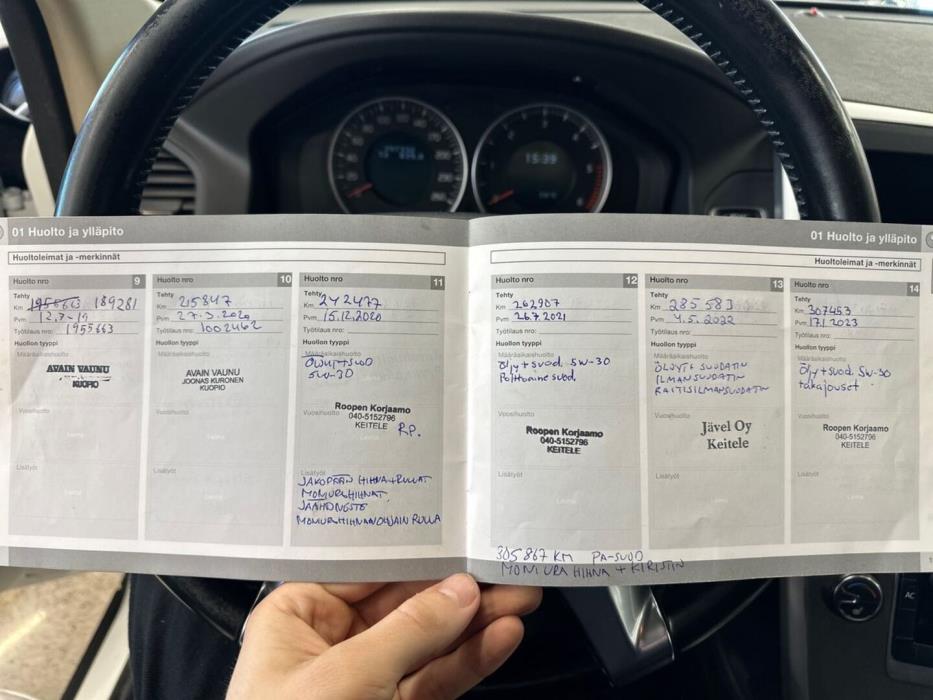 01 Huolto ja ylläpito
Huoltoleimat ja -merkinnät
Huolto nro 9
Tehty
Km 195663 189281
Pvm 12.7-19
Työtilaus nro: 1955663
Huollon tyyppi
Määräaikaishuolto
AVAIN VAUNU
KUOPIO
Vuosihuolto
Leima
Lisätyöt
Leima
Huolto nro 10
Tehty
Km 215847
Pvm 27.3.2020
Työtilaus nro: 1002462
Huollon tyyppi
Määräaikaishuolto
AVAIN VAUNU
JOONAS KURONEN
KUOPIO
Vuosihuolto
Leima
Lisätyöt
Leima
Huolto nro 11
Tehty
Km 242477
Pvm 15.12.2020
Työtilaus nro:
Huollon tyyppi
Määräaikaishuolto
ÖLJYT+SUOD
5W-30
Vuosihuolto
Roopen Korjaamo
040-5152796
KEITELE RP.
Lisätyöt
JAKOPÄÄN HIHNA+RULLAT
MONIURAHIHNAT
JÄÄHD.NESTE
MONIURAHIHNANOHJAIN RULLA
01 Huolto ja ylläpito
Huoltoleimat ja -merkinnät
Huolto nro 12
Tehty
Km 262907
Pvm 26.7.2021
Työtilaus nro:
Huollon tyyppi
Määräaikaishuolto
Öljy+suod. 5W-30
Polttoaine suod.
Vuosihuolto
Roopen Korjaamo
040-5152796
KEITELE
Lisätyöt
Huolto nro 13
Tehty
Km 285583
Pvm 4.5.2022
Työtilaus nro:
Huollon tyyppi
Määräaikaishuolto
ÖLJYT+ SUODATIN
ILMANSUODATIN
RAITISILMANSUODATIN
Vuosihuolto
Jävel Oy
Keitele
Lisätyöt
Huolto nro 14
Tehty
Km 307453
Pvm 17.1.2023
Työtilaus nro:
Huollon tyyppi
Määräaikaishuolto
Öljy+suod. 5W-30
takajouset
Vuosihuolto
Roopen Korjaamo
040-5152796
KEITELE
Lisätyöt
305867 KM PA-SUOD
MONIURA HIHNA + KIRISTIN
15:39
AC